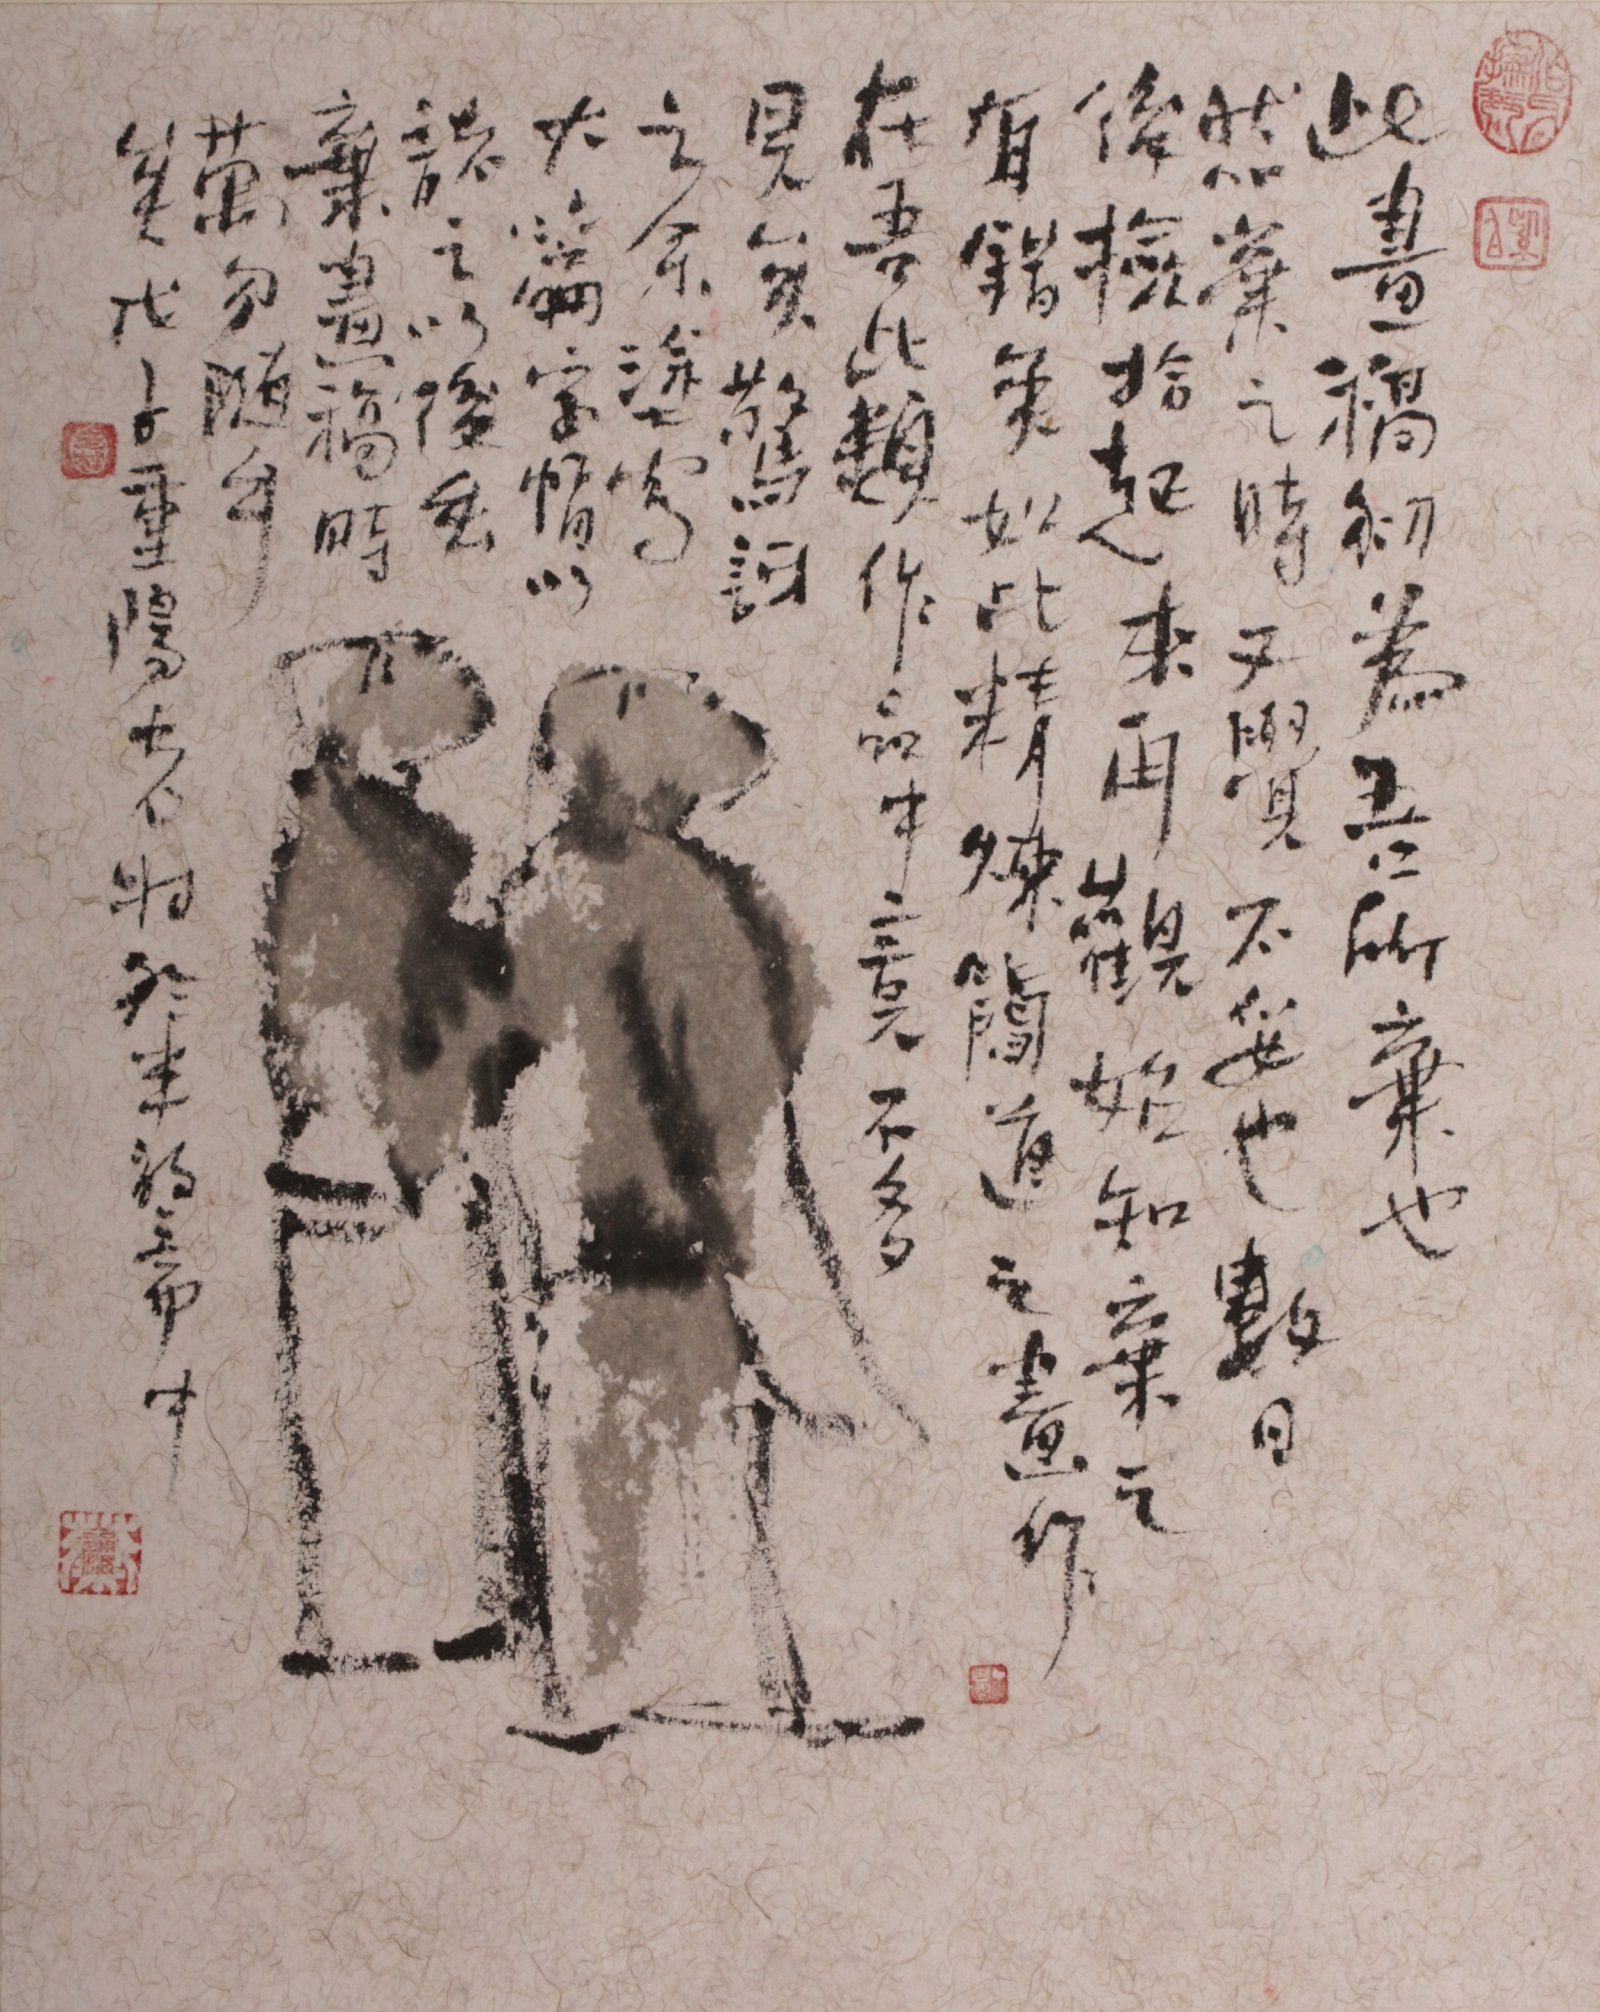 此畫稿初為吾所棄也
然棄之時又覺不妥也數日
後檢拾起來再觀始知棄之
有錯矣如此精煉簡道之畫作
在吾此類作品中竟不多
見矣驚訝
之余塗寫
大篇字幅以
誌之以後丟
棄畫稿時
萬勿隨手
矣戊子重陽老朽於半詩齋中